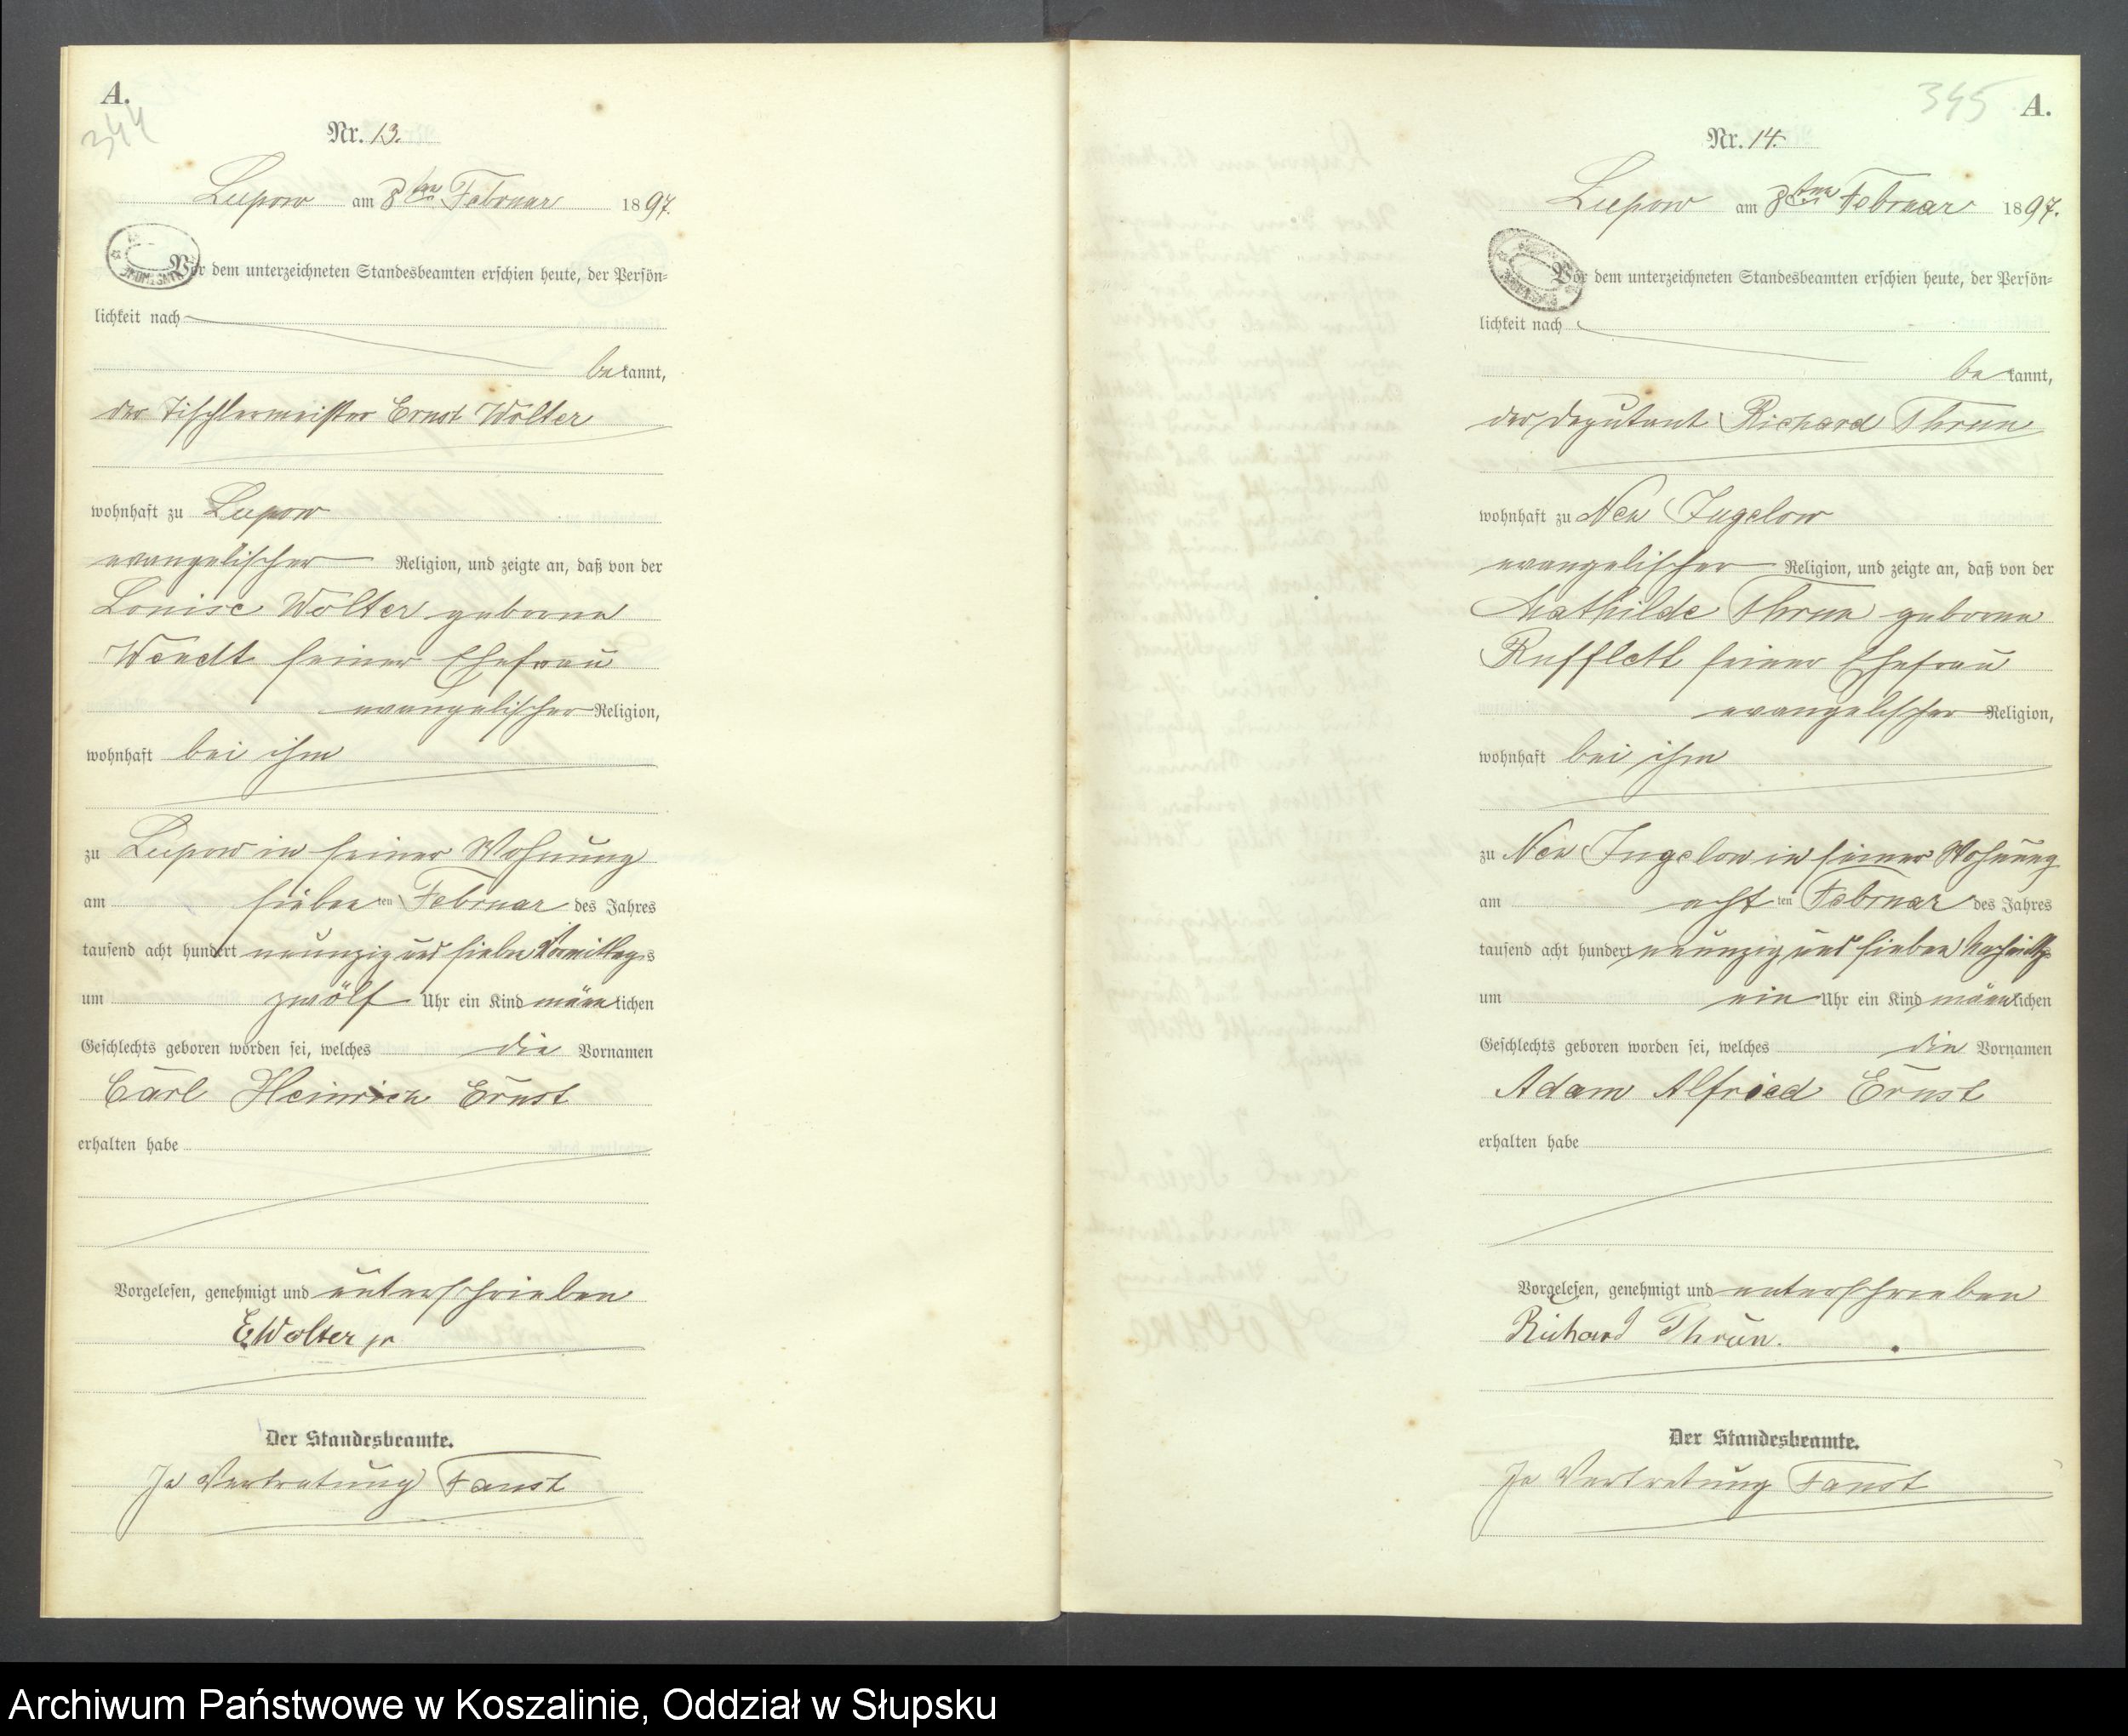 A.
344
Nr. 13.
Lupow am 8ten Februar 1897.
Vor dem unterzeichneten Standesbeamten erschien heute, der Persön=
lichkeit nach
bekannt,
der Tischlermeister Ernst Wolter
wohnhaft zu Lupow
evangelischer Religion, und zeigte an, daß von der
Louise Wolter geborene
Wendt seiner Ehefrau
evangelischer Religion,
wohnhaft bei ihm
zu Lupow in seiner Wohnung
am sieben ten Februar des Jahres
tausend acht hundert neunzig und sieben Vormittags
um zwölf Uhr ein Kind männlichen
Geschlechts geboren worden sei, welches die Vornamen
Carl Heinrich Ernst
erhalten habe
Vorgelesen, genehmigt und unterschrieben
E. Wolter jr
Der Standesbeamte.
In Vertretung Faust
345
A.
Nr. 14.
Lupow am 8ten Februar 1897.
Vor dem unterzeichneten Standesbeamten erschien heute, der Persön=
lichkeit nach
bekannt,
der Deputant Richard Thrun
wohnhaft zu Neu Jugelow
evangelischer Religion, und zeigte an, daß von der
Mathilde Thrun geborene
Rufflett seiner Ehefrau
evangelischer Religion,
wohnhaft bei ihm
zu Neu Jugelow in seiner Wohnung
am acht ten Februar des Jahres
tausend acht hundert neunzig und sieben Nachmittags
um ein Uhr ein Kind männlichen
Geschlechts geboren worden sei, welches die Vornamen
Adam Alfried Ernst
erhalten habe
Vorgelesen, genehmigt und unterschrieben
Richard Thrun.
Der Standesbeamte.
In Vertretung Faust
Archiwum Państwowe w Koszalinie, Oddział w Słupsku